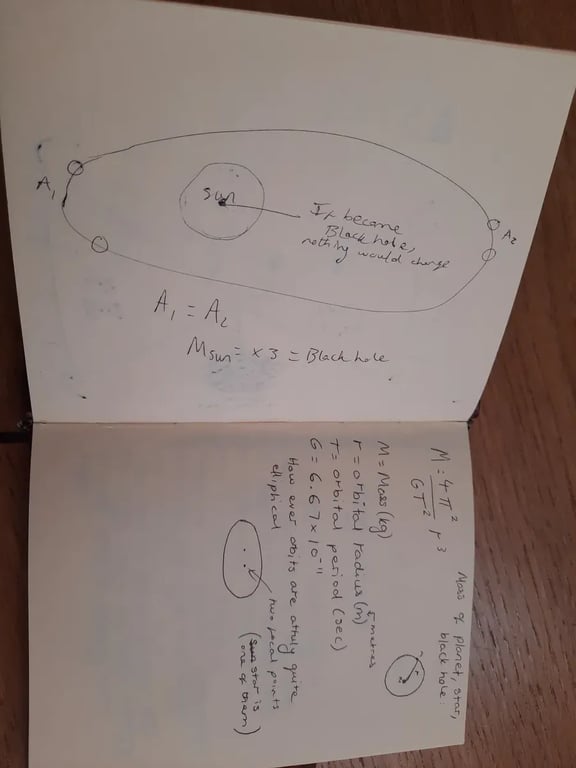 A₁
Sun
If became
Black hole,
nothing would change
A₂
A₁ = A₂
Msun = x 3 = Black hole
Mass of planet, star,
black hole:
M = 4π² r³
GT²
M = Mass (kg)
r = orbital radius (m)
metres
T = orbital period (sec)
G = 6.67 x 10⁻¹¹
How ever orbits are
quite
elliptical
two focal points
(star is
one of them)